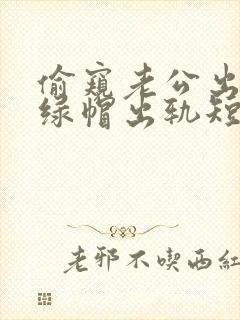 偷窥老公出
绿帽出轨短
老邪不喫西红